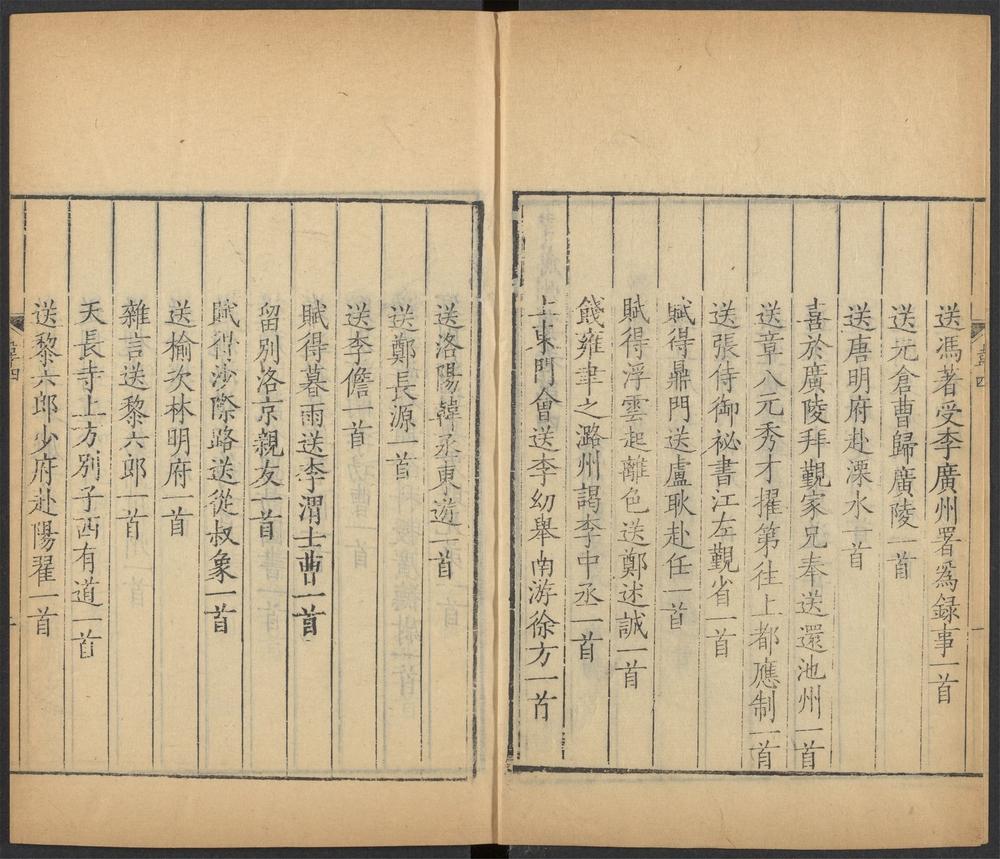 送馮著受李廣州署爲録事一首
送元倉曹歸廣陵一首
送唐明府赴溧水一首
喜於廣陵拜覲家兄奉送還池州一首
送章八元秀才擢第往上都應制一首
送張侍御祕書江左覲省一首
賦得鼎門送盧耿赴任一首
賦得浮雲起離色送鄭述誠一首
餞雍聿之潞州謁李中丞一首
上東門會送李幼舉南游徐方一首
送洛陽韓丞東遊一首
送鄭長源一首
送李儋一首
賦得暮雨送李渭士曹一首
留別洛京親友一首
賦得沙際路送從叔象一首
送榆次林明府一首
雜言送黎六郎一首
天長寺上方別子西有道一首
送黎六郎少府赴陽翟一首